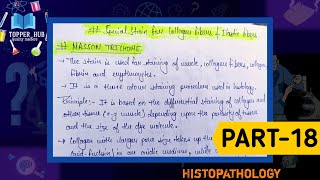 TOPPER_HUB
quality matters
# Special Stain for Collagen fibres & Elastic fibres
# MASSON TRICHOME
→ The stain is used for staining of muscle, collagen fibres, collagen,
fibrin and erythrocytes.
→ It is a three colour staining procedure used in histology.
Principle:- It is based on the differential staining of collagen and
other tissue (e.g muscle) depending upon the porosity of tissue
and the size of the dye molecule.
→ Collagen with larger pore size takes up the
in an acidic medium, while
PART-18
HISTOPATHOLOGY